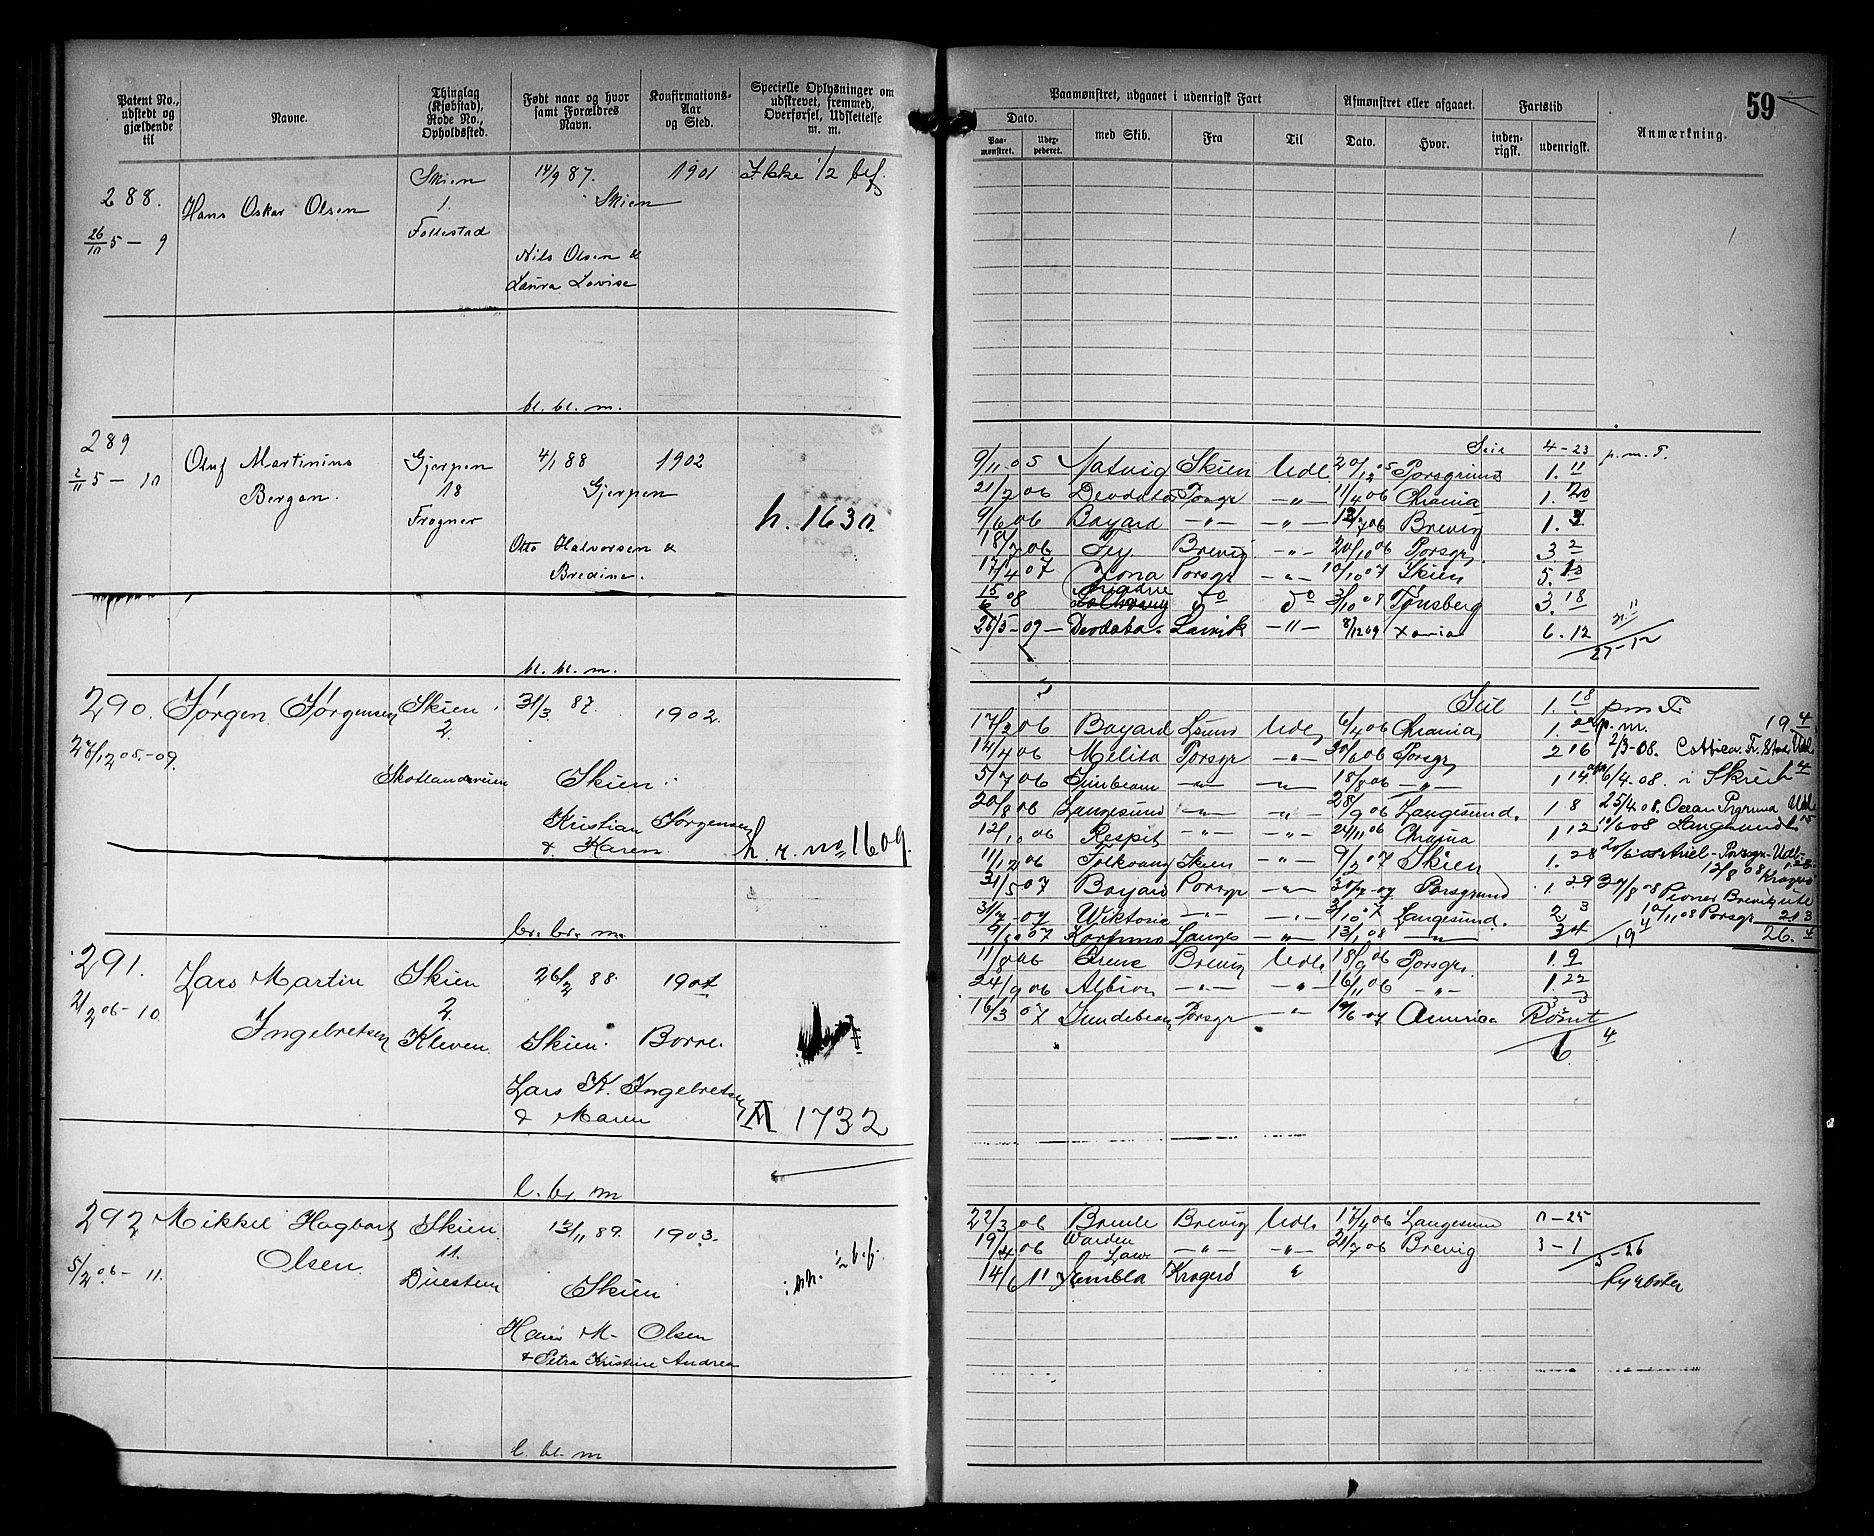 59
Patent No., udstedt og gjældende til
Navne.
Thinglag (Kjøbstad), Rode No., Opholdssted.
Født naar og hvor samt Forældres Navn.
Konfirmations-Aar og Sted.
Specielle Oplysninger om udskrevet, fremmed, Overførsel, Udslettelse m. m.
Paamønstret, udgaaet i udenrigsk Fart
Afmønstret eller afgaaet.
Fartstid
Anmærkning.
Dato.
Paa-mønstret.
med Skib.
Fra
Til
Dato.
Hvor.
inden-rigsk.
udenrigsk.
288.
26/10 5 — 9
Hans Oskar Olsen
Skien
1.
Follestad
14/9 87.
Skien
Nils Olsen &
Laura Lovise
1901
Ikke 1/2 bef.
bl. bl. m.
289
2/11 5 — 10
Oluf Martinius
Bergan.
Gjerpen
18
Frogner
4/1 88
Gjerpen
Otto Halvorsen &
Bredine.
1902
h. 1630.
4 - 23 p. m. F.
9/11 05 Skien Udl. Porsgrund 1. 11
21/2 06 Deodata Porsgr —"— 11/4 06 Chrania 1. 20
9/6 06 Bayard —"— —"— Brevig 1. 3
18/7 06 Brevig —"— 20/10 06 Porsgr. 3 2
17/4 07 Porsgr —"— 10/10 07 Skien 5.
15/6 08 do do 3/10 08 Tønsberg 3. 18
26/5 - 09 — Deodata. Larvik —"— 8/12 09 Xania 6. 12
27 - 12
bl. bl. m.
290.
27/12 05 - 09.
Jørgen Jørgensen
Skien.
2.
Skotlandsveien
31/3 87.
Skien.
Kristian Jørgensen
& Karen
1902.
h. r. no 1609.
Seil 1. 18 pm F.
17/2 06 Bayard Udl. 6/4 06 Chrania 1. p. m. 19 4
14/4 06 Melita Porsgr —"— 30/6 06 Porsgr. 2 16 2/3 - 08. Cottica. Fr. Stad Udl
5/7 06 Sunbeam —"— —"— 18/8 06 —"— 1 14 6/4. 08. i
20/8 06 Langesund —"— —"— 28/9 06 Langesund. 1 8 25/4 08. Ocean Pgrund Udl
12/10 06 Respit —"— —"— 24/11 06 Chrania 1 12 10/6 08 Langesund
11/12 06 Folkvang Skien —"— 9/2 07 Skien 1. 28 Ariel - Porsgr - Udl -
12/8 08 Kragerø
31/5 07 Bayard Porsgr —"— Porsgrund 1 29 Pioner Brevig ute
31/7 - 07 Wiktoria —"— —"— 3/10 07 Langesund. 2 3 10/11 08 Porsgr 2 13
9/10 07 Langes —"— 13/1 08 —"— 3 4 19 4 26. 4
br. br. m.
291.
21/2 06 - 10.
Lars Martin
Ingebretsen
Skien
2.
Kleven.
26/2 88.
Skien.
Lars K. Ingebretsen
& Maren
1904
Borre.
1732
11/8 06 Irene Brevig Udl. 18/9 06 Porsgr. 1. 9
24/9 06 Albion —"— —"— 16/11 06 —"— 1. 22
16/3 07 Sundebeam Porsgr —"— America Rømt
6 4
l. bl. m
292
5/2 06 - 11.
Mikkel Hagbart
Olsen.
Skien
11.
Duestien
13/11 89.
Skien
Hans M. Olsen
& Petra Kristine Andrea
1903.
1/2 bef.
22/3 06 Bamle Brevig Udl. 17/4 06 Langesund 0 - 25
19/4 06 Warden Law —"— —"— 21/7 06 Brevig 3 - 1
3 - 26
14/6 11 Embla Kragerø
Fyrbøter
l. bl. m